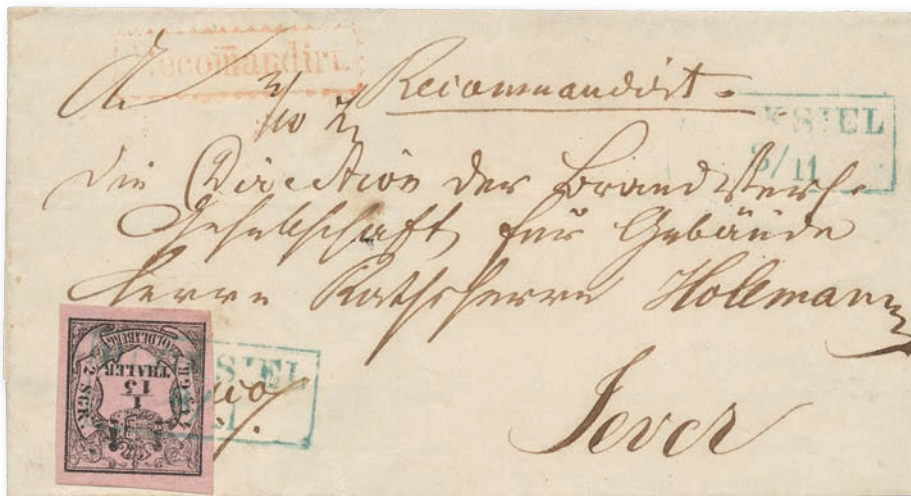 Recomandirt
An
Recommandirt.
SIEL
3/11
die Direction der Brand Vers.
Gesellschaft für Gebäude
Herrn Rathsherrn Hollmann
OLDENBURG
2 SGR.
THALER
1
15
SIEL
Jever